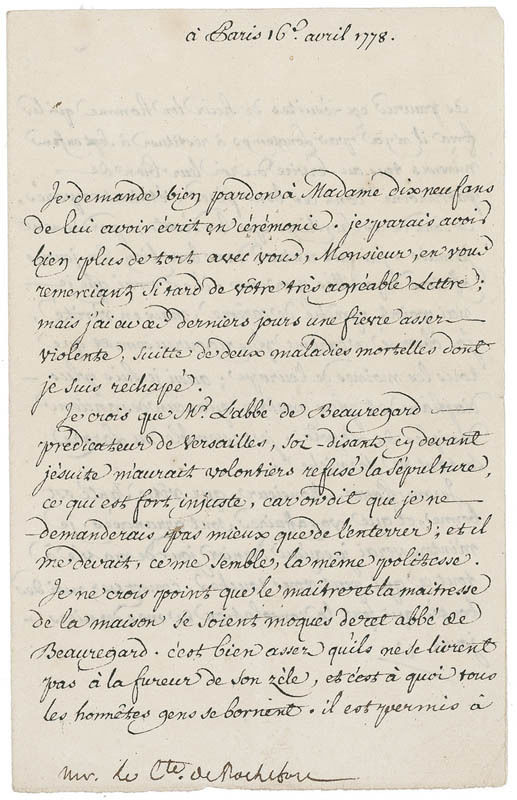 à Paris 16.e avril 1778.
Je demande bien pardon à Madame dixneufans
de lui avoir écrit en cérémonie. je parais avoir
bien plus de tort avec vous, Monsieur, en vous
remerciant si tard de vôtre très agréable Lettre;
mais j'ai eu ces derniers jours une fievre assez
violente, suitte de deux maladies mortelles dont
je suis réchapé.
Je crois que Mr. Labbé de Beauregard
prédicateur de Versailles, soi-disant cy devant
jésuite m'aurait volontiers refusé la sépulture,
ce qui est fort injuste, car on dit que je ne
demanderais pas mieux que de l'enterrer; et il
me devait, ce me semble, la même politesse.
Je ne crois point que le maître et la maitresse
de la maison se soient moqués de cet abbé de
Beauregard. c'est bien assez qu'ils ne se livrent
pas à la fureur de son zèle, et c'est à quoi tous
les honnêtes gens se bornent. il est permis à
mr. le Cte. de Rochefort